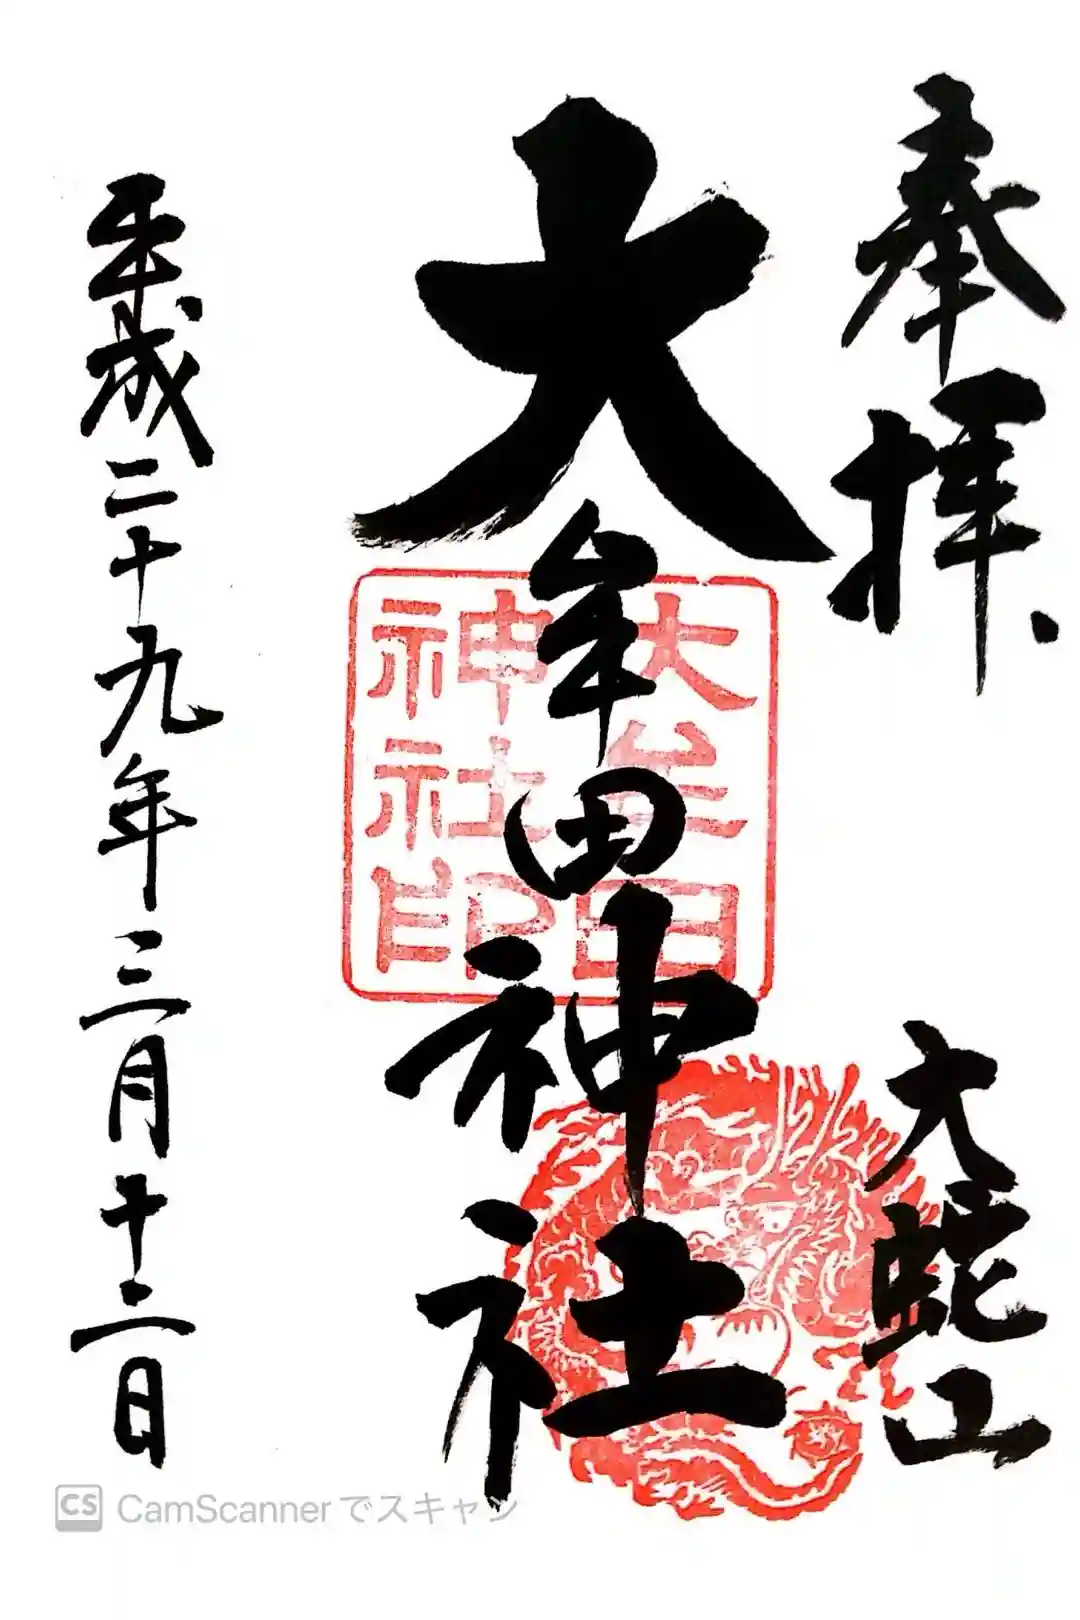 奉拝、
大蛇山
大牟田神社
大牟田
神社印
平成二十九年三月十二日
CS CamScannerでスキャン